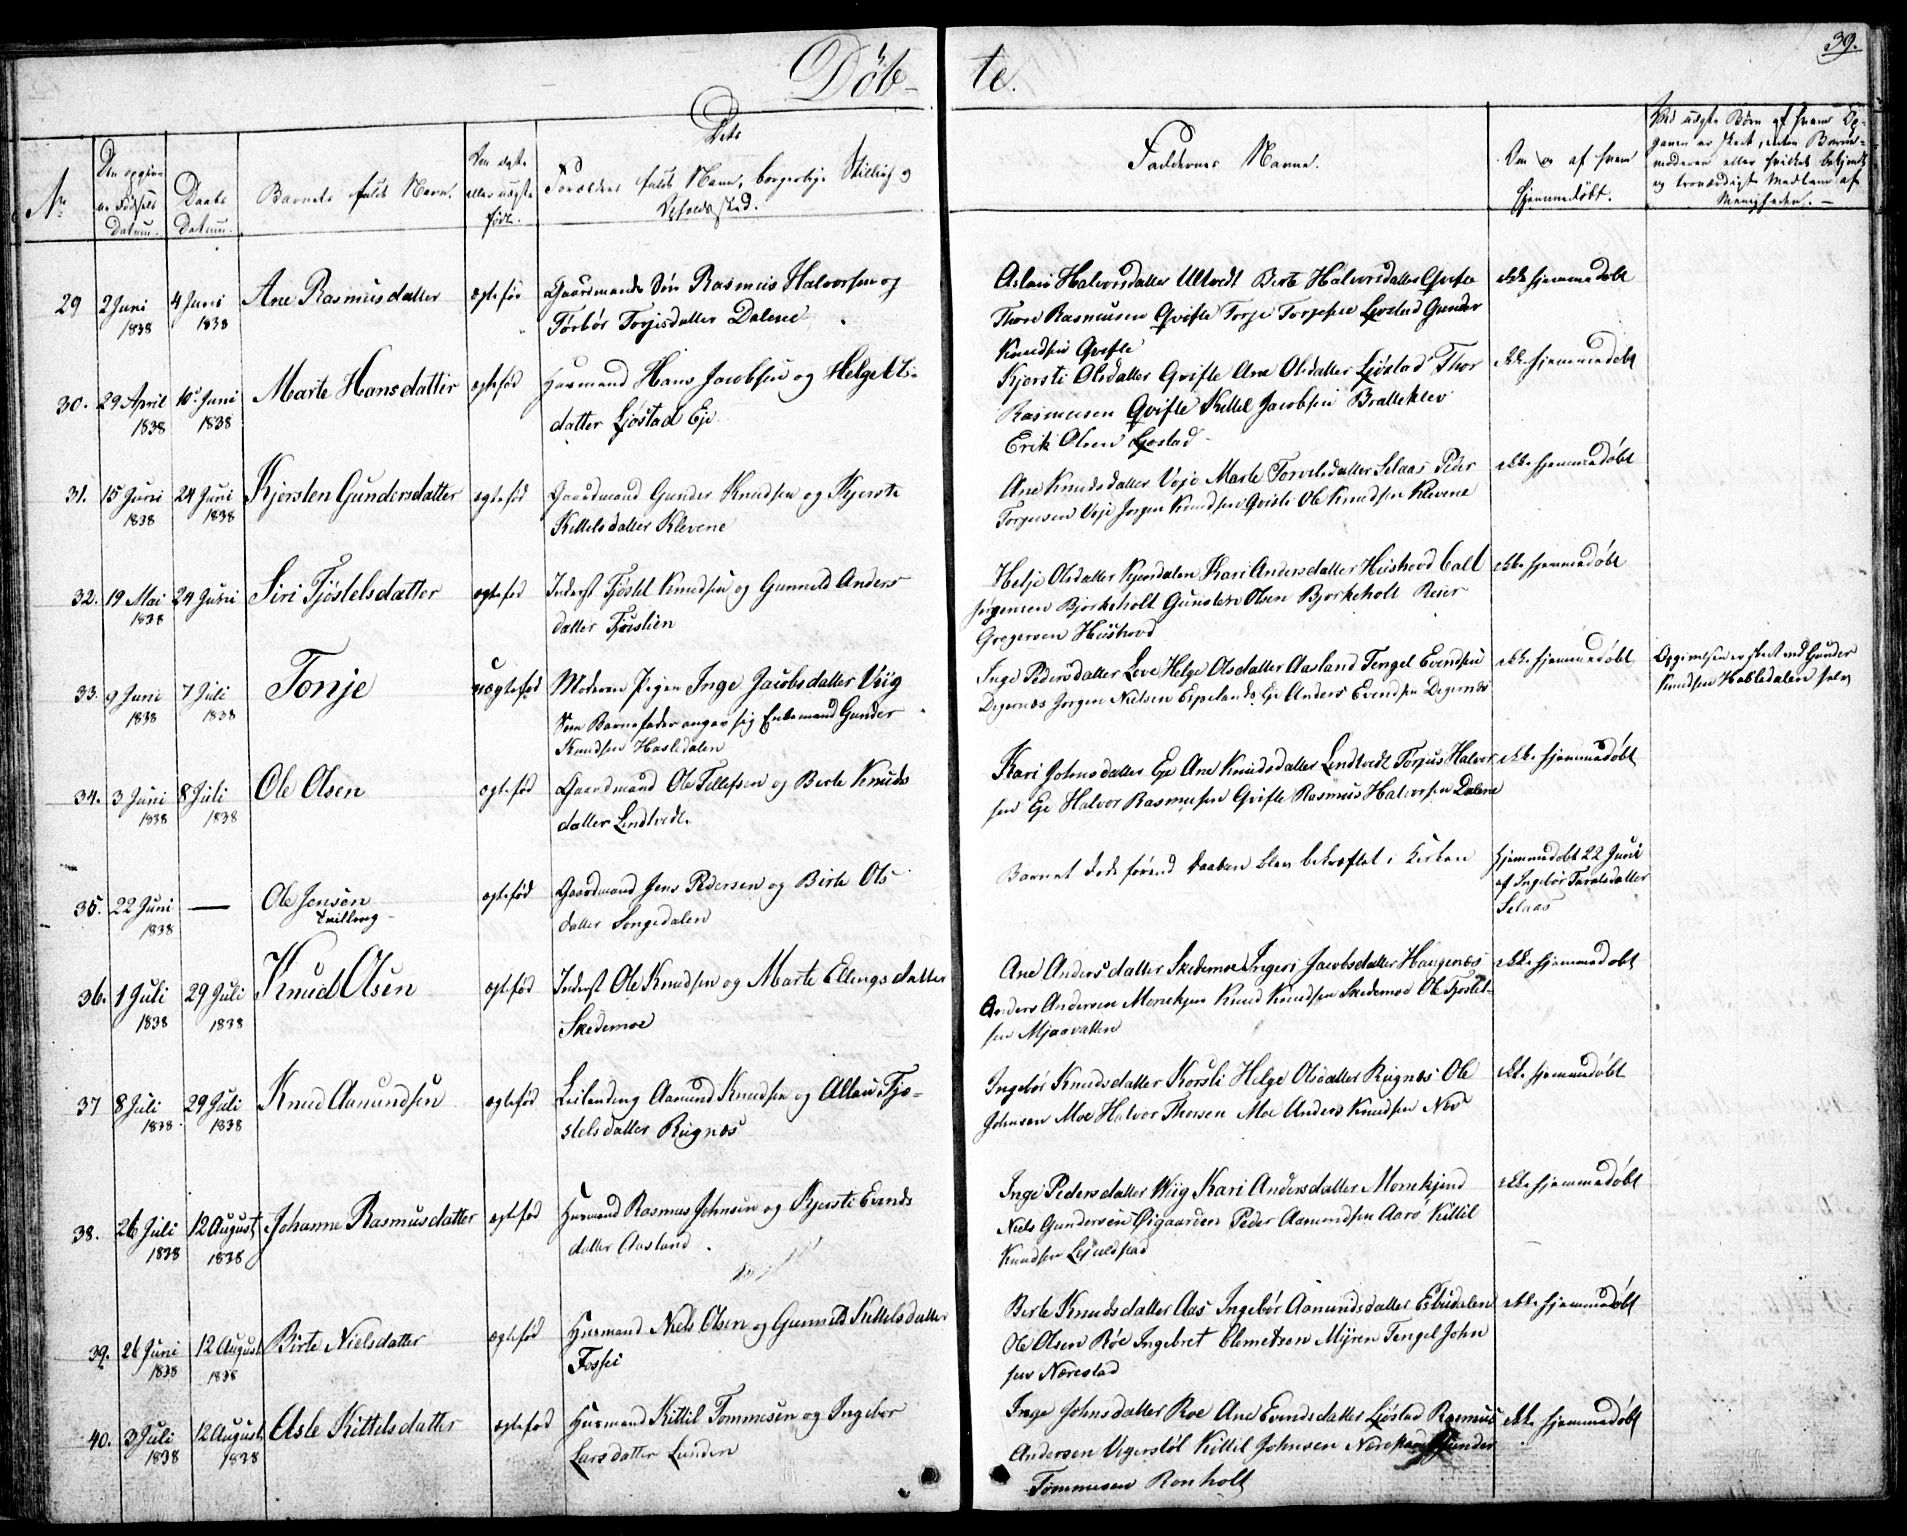 39.
Døb-
te.
No
Den opgivne Fødsels Datum.
Daabs Datum.
Barnets fulde Navn.
Om ægte eller uægte født.
Dets Forældres fulde Navn, borgerlige Stilling og Opholdssted.
Faddernes Navne.
Om og af hvem hjemmedøbt.
Ved uægte Børn af hvem Opgaven er skeet, enten Barnemoderen eller hvilket bekjendt og troværdigt Medlem af Menigheden.
29 2 Juni 1838 4 Juni 1838 Ane Rasmusdatter ægtefød Gaardmands Søn Rasmus Halvorsen og
Torbør Torjisdatter Dalene
Aslau Halvorsdatter Ulltvedt Berte Halvorsdatter Qvifte
Thore Rasmusen Qvifte Torje Torjesen Ljøstad Gunder
Knudsen Qvifte
ikke hjemmedøbt
30. 29 April 1838 10 Juni 1838 Marte Hansdatter ægtefød Husmand Hans Jacobsen og Helge Ols-
datter Ljøstad Eje
Kjersti Olsdatter Qvifte Ane Olsdatter Ljøstad Thor
Rasmusen Qvifte Kittel Jacobsen Bratteklev
Erik Olsen Ljøstad
ikke hjemmedøbt
31. 15 Juni 1838 24 Juni 1838 Kjersten Gundersdatter ægtefød Gaardmand Gunder Knudsen og Kjerste
Kittelsdatter Klevene
Ane Knudsdatter Veje Marte Torvelsdatter Selaas Peder
Torjusen Veje Jørgen Knudsen Qvisli Ole Knudsen Klevene
ikke hjemmedøbt
32. 19 Mai 1838 24 Juni Siri Tjøstelsdatter ægtefød Inderst Tjøstel Knudsen og Gunneld Anders
datter Tjøslien
Helje Olsdatter Kjendalen Kari Andersdatter Heishovd Carl
Jørgensen Bjørkeholt Gunsten Olsen Bjørkeholt Reier
Gregersen Heishovd
ikke hjemmedøbt
33. 9 Juni 1838 7 Juli 1838 Tonje uægtefød Moderen Pigen Inge Jacobsdatter Viig
Som Barnefader angav sig Enkemand Gunder
Knudsen Hasledalen
Inge Pedersdatter Løve Helge Olsdatter Aasland Tengel Evendsen
Degernæs Jørgen Nielsen Espelands Eje Anders Evendsen Degernæs
ikke hjemmedøbt
Opgivelsen er skeet ved Gunder
Knudsen Hasledalen selv
34. 3 Juni 1838 8 Juli 1838 Ole Olsen ægtefød Gaardmand Ole Tellefsen og Berte Knuds
datter Lindtvedt.
Kari Johnsdatter Eje Ane Knudsdatter Lindtvedt Torjus Halvor
sen Eje Halvor Rasmusen Qvifte Rasmus Halvorsen Dalene
ikke hjemmedøbt
35. 22 Juni 1838 — Ole Jensen
tvilling
ægtefød Gaardmand Jens Pedersen og Birte Ols
datter Songedalen
Barnet døde førend Daaben blev bekræftet i Kirken
Hjemmedøbt 22 Juni
af Ingebør Taralsdatter
Selaas
36. 1 Juli 1838 29 Juli 1838 Knud Olsen ægtefød Inderst Ole Knudsen og Marte Ellengsdatter
Skedemoe
Ane Andersdatter Skedemoe Ingeri Jacobsdatter Haugenæs
Anders Andersen Monekjen Knud Knudsen Skedemoe Ole Tjøstel-
sen Mjaavatten
ikke hjemmedøbt
37 8 Juli 1838 29 Juli 1838 Knud Aanundsen ægtefød Leilending Aanund Knudsen og Aslau Tjø-
stelsdatter Rugnæs
Ingebør Knudsdatter Korsli Helge Olsdatter Rugnæs Ole
Johnsen Moe Halvor Thorsen Moe Anders Knudsen Næs
ikke hjemmedøbt
38. 26 Juli 1838 12 August 1838 Johanne Rasmusdatter ægtefød Husmand Rasmus Johnsen og Kjersti Evends
datter Aasland
Inge Pedersdatter Wiig Kari Andersdatter Monekjend
Niels Gundersen Øigaarden Peder Aamundsen Aarø Kittil
Knudsen
ikke hjemmedøbt
39. 26 Juni 1838 12 August 1838 Birte Nielsdatter ægtefød Husmand Niels Olsen og Gunnild Kittelsdatter
Fossei
Berte Knudsdatter Aas Ingebør Aanundsdatter Esbudalen
Ole Olsen Røe Ingebret Clemetsen Myren Tengel John
sen Nærestad
ikke hjemmedøbt
40. 3 Juli 1838 12 August 1838 Asle Kittelsdatter ægtefød Husmand Kittil Tommesen og Ingebor
Larsdatter Lunden
Inge Johnsdatter Roe Ane Evendsdatter Ljøstad Rasmus
Andersen Vegerstøl Kittil Johnsen Nærestad Gunder
Tommesen Ronholt
ikke hjemmedøbt